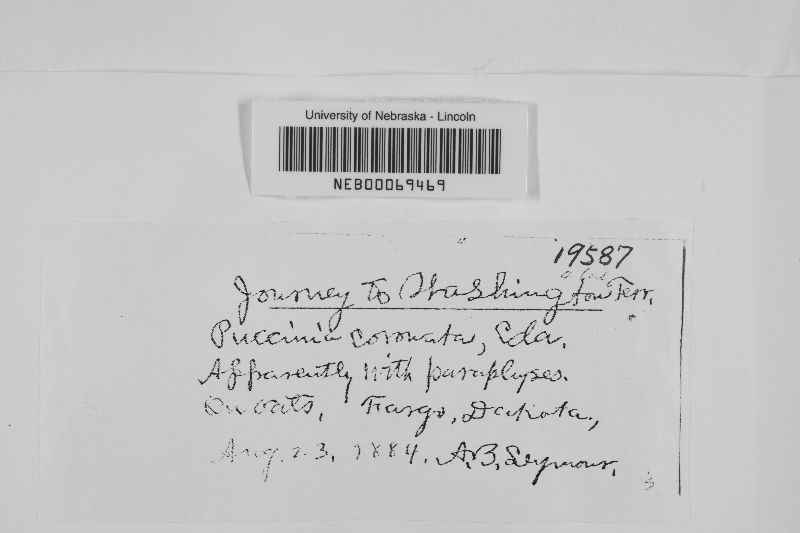 University of Nebraska - Lincoln
NEB00069469
19587
Journey to Washington Terr.
Puccinia coronata, Cda.
Apparently with paraphyses.
On oats, Fargo, Dakota,
Aug. 23, 1884. A.B. Seymour.